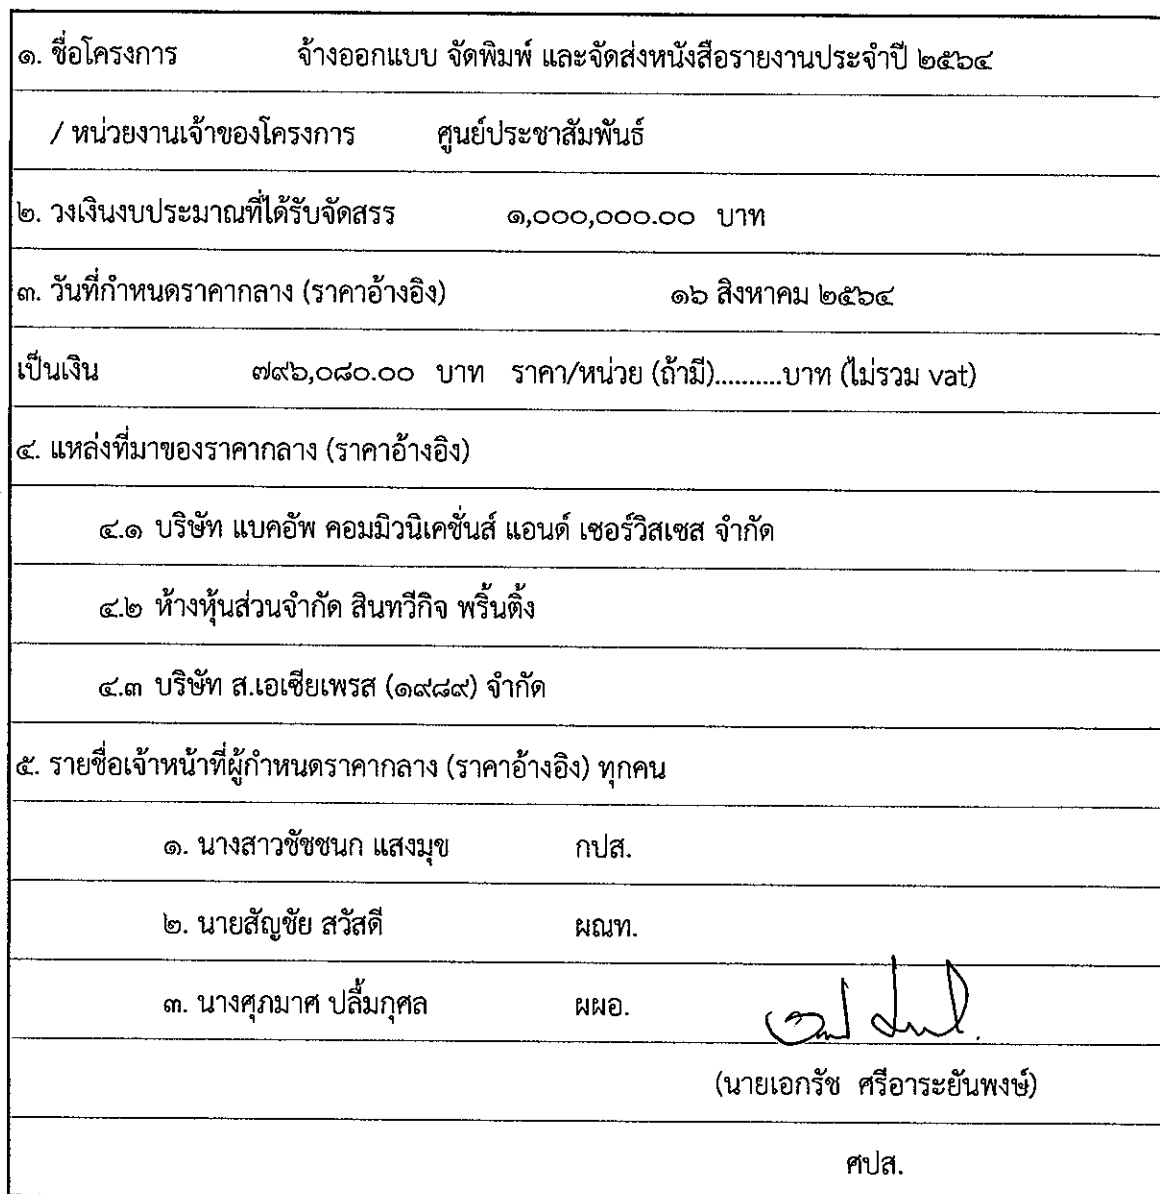 ๑. ชื่อโครงการ จ้างออกแบบ จัดพิมพ์ และจัดส่งหนังสือรายงานประจำปี ๒๕๖๔
/ หน่วยงานเจ้าของโครงการ ศูนย์ประชาสัมพันธ์
๒. วงเงินงบประมาณที่ได้รับจัดสรร ๑,๐๐๐,๐๐๐.๐๐ บาท
๓. วันที่กำหนดราคากลาง (ราคาอ้างอิง) ๑๖ สิงหาคม ๒๕๖๔
เป็นเงิน ๗๙๖,๐๘๐.๐๐ บาท ราคา/หน่วย (ถ้ามี)..........บาท (ไม่รวม vat)
๔. แหล่งที่มาของราคากลาง (ราคาอ้างอิง)
๔.๑ บริษัท แบคอัพ คอมมิวนิเคชั่นส์ แอนด์ เซอร์วิสเซส จำกัด
๔.๒ ห้างหุ้นส่วนจำกัด สินทวีกิจ พริ้นติ้ง
๔.๓ บริษัท ส.เอเซียเพรส (๑๙๘๙) จำกัด
๕. รายชื่อเจ้าหน้าที่ผู้กำหนดราคากลาง (ราคาอ้างอิง) ทุกคน
๑. นางสาวชัชชนก แสงมุข กปส.
๒. นายสัญชัย สวัสดี ผณท.
๓. นางศุภมาศ ปลื้มกุศล ผผอ.
(นายเอกรัช ศรีอาระยันพงษ์)
ศปส.